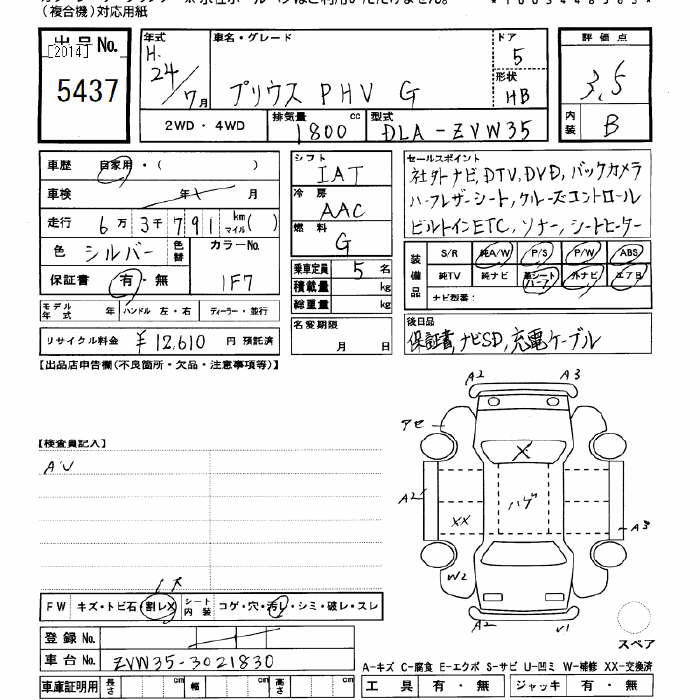 (複合機)対応用紙
出品No.
[2014]
5437
年式
H.
24/7月
車名・グレード
プリウス PHV G
ドア
5
形状
HB
評価点
3.5
内装
B
2WD・4WD
排気量
1800 cc
型式
DLA-ZVW35
車歴 自家用・( )
車検 年 月
走行 6万 3千 791 km マイル( )
色 シルバー 色替 カラーNo. 1F7
保証書 有・無
モデル年式 年 ハンドル 左・右 ディーラー・並行
リサイクル料金 ¥12,610 円 預託済
シフト
IAT
冷房
AAC
燃料
G
乗車定員 5 名
積載量 kg
総重量 kg
名変期限
月 日
セールスポイント
社外ナビ,DTV,DVD,バックカメラ
ハーフレザーシート,クルーズコントロール
ビルトインETC,ソナー,シートヒーター
装備品
S/R 純A/W P/S P/W ABS
純TV 純ナビ 革シート ハーフ 外ナビ エアB
ナビ型番:
後日品
保証書,ナビSD,充電ケーブル
【出品店申告欄(不良箇所・欠品・注意事項等)】
【検査員記入】
A'U
A2 A3
アセ
X
A2 ハゲ
XX A3
W2
A2 V1
スペア
FW キズ・トビ石・割レX シート内装 コゲ・穴・汚レ・シミ・破レ・スレ
登録No.
車台No. ZVW35-3021830
A-キズ C-腐食 E-エクボ S-サビ U-凹ミ W-補修 XX-交換済
車庫証明用 長さ cm 幅 cm 高さ cm
工具 有・無 ジャッキ 有・無